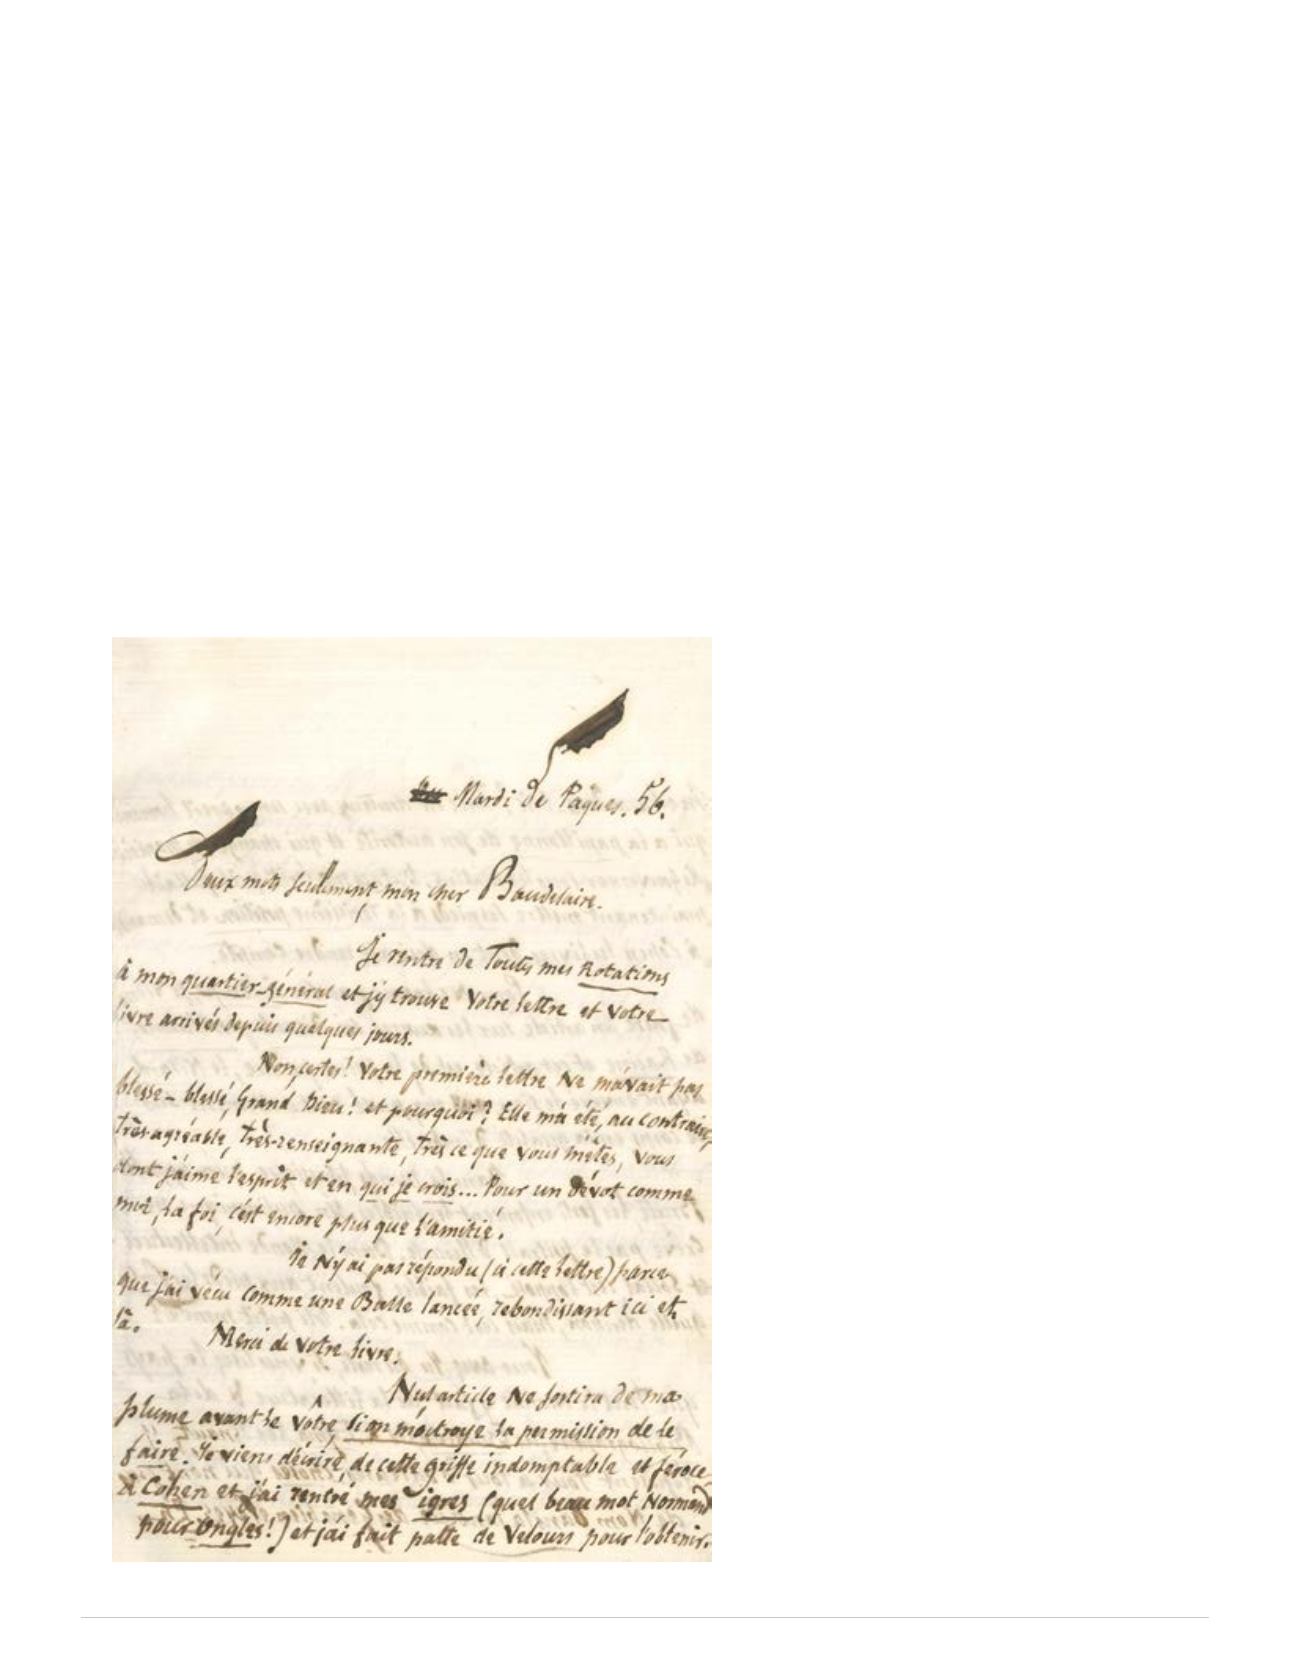 Mardi de Pâques. 56.
Deux mots seulement, mon cher Baudelaire.
Je rentre de Toutes mes Rotations
à mon quartier-général et j'y trouve Votre lettre et Votre
livre arrivés depuis quelques jours.
Non, certes! Votre première lettre Ne m'avait pas
blessé – blessé, Grand Dieu! et pourquoi? Elle m'a été, au contraire,
très-agréable, très-renseignante, très ce que vous m'êtes, vous
dont j'aime l'esprit et en qui je crois... Pour un dévot comme
moi, la foi, c'est encore plus que l'amitié.
Je N'y ai pas répondu (à cette lettre) parce
que j'ai vécu comme une Balle lancée, rebondissant ici et
là.
Merci de Votre livre.
Nul article Ne sortira de ma
plume avant le Vôtre, si on m'octroye la permission de le
faire. Je viens d'écrire, de cette griffe indomptable et féroce
à Cohen et j'ai rentré mes igres (quel beau mot Normand
pour ongles!) et j'ai fait patte de Velours pour l'obtenir.